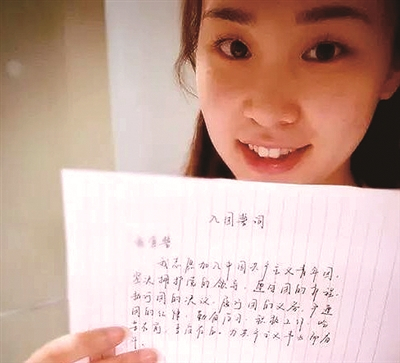 入团誓词
宣誓
我志愿加入中国共产主义青年团，
坚决拥护党的领导，遵守团的章程，
执行团的决议，履行团的义务，严遵
团的纪律，勤奋学习，积极工作，吃
苦在前，享受在后，为共产主义事业而奋
斗。